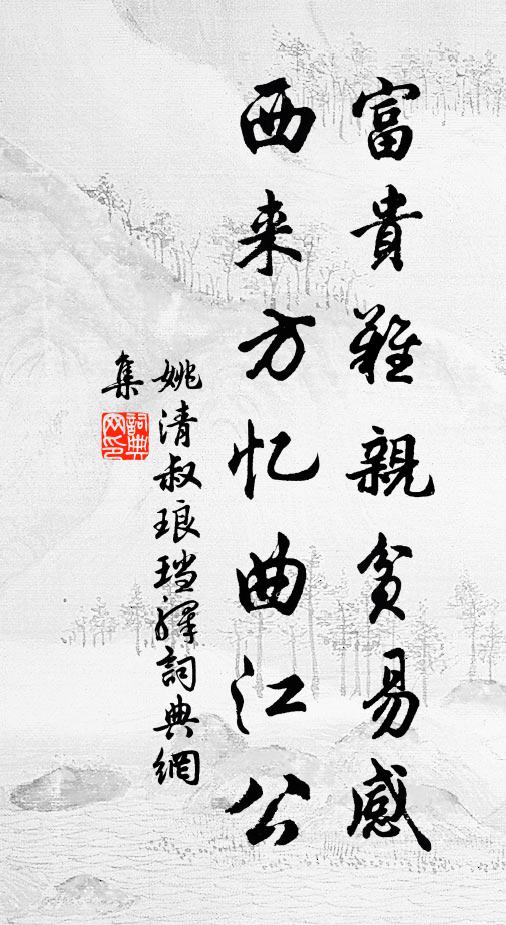 富貴難親貧易感
西来方忆曲江公
姚清叔琅珰驿詞典網
集
詞典网印